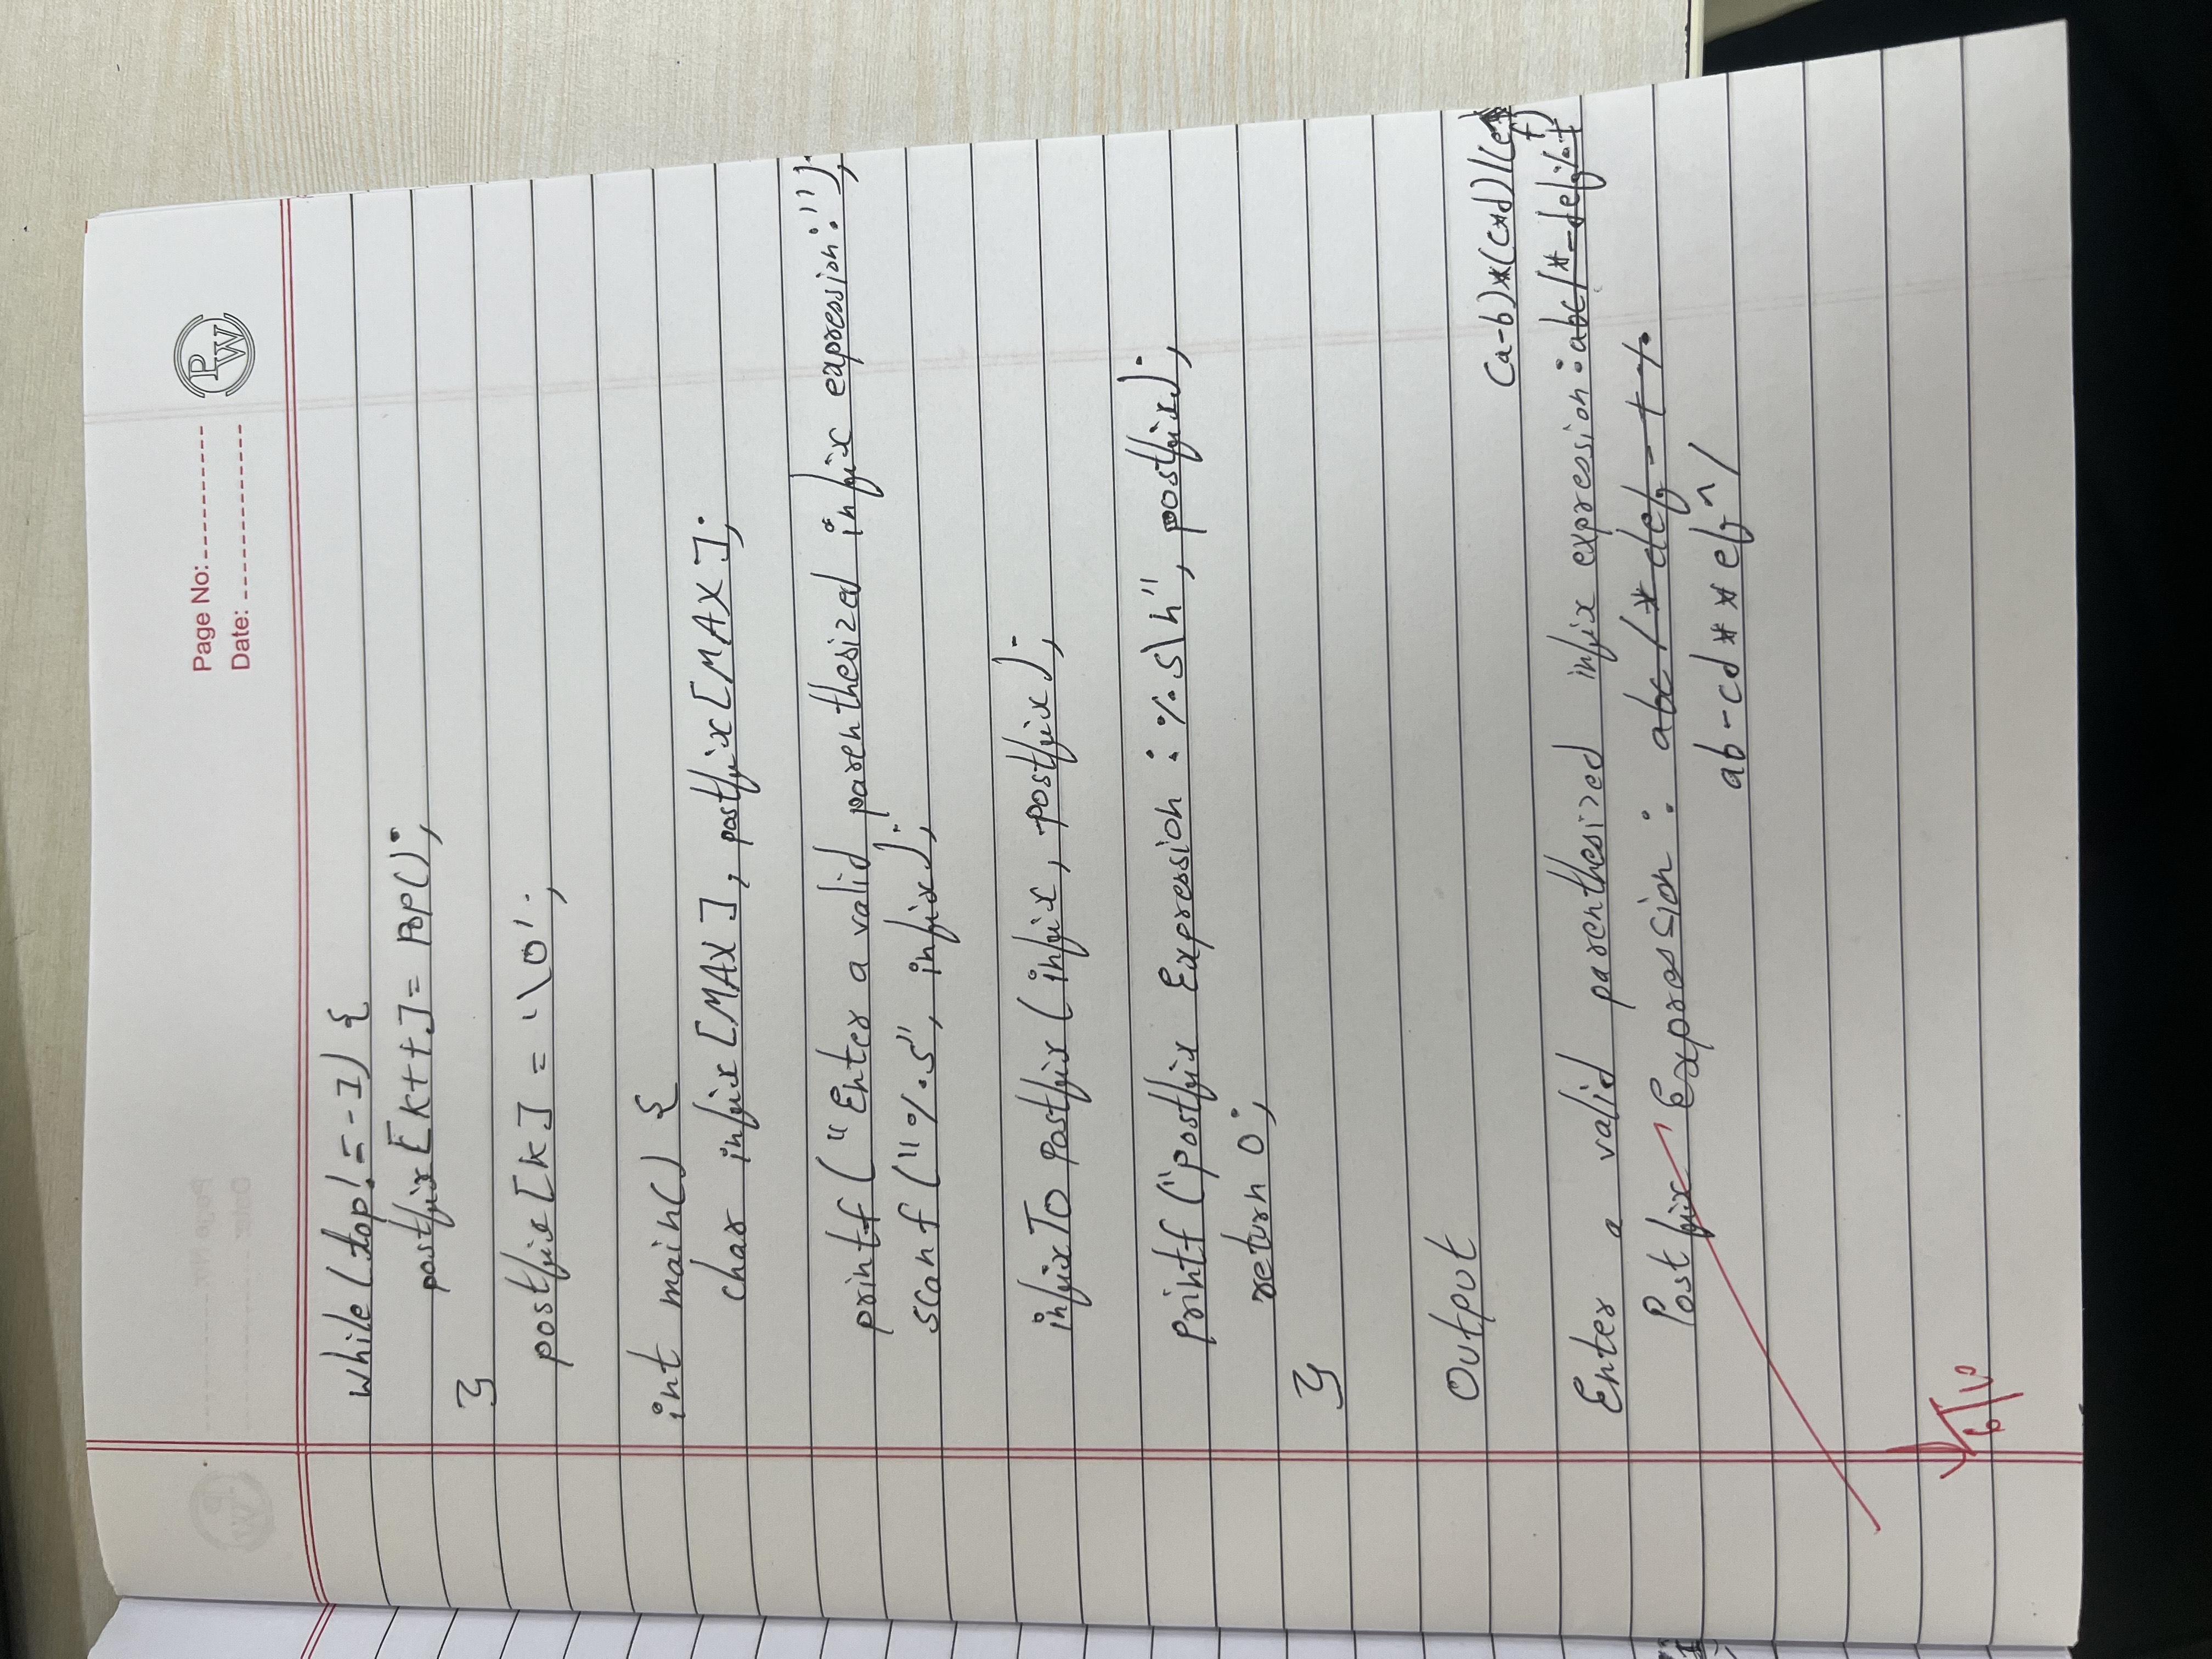 Page No:
Date:
PW
while(top!=-1) {
postfix[k++]= pop();
}
postfix[k] = '\0';
int main() {
char infix[MAX], postfix[MAX];
printf("Enter a valid parenthesized infix expression:");
scanf("%s", infix);
infixTo Postfix(infix, postfix);
printf("postfix Expression : %s\n", postfix);
return 0;
}
Output
(a-b)*(c*d)/(e^
f)
Enter a valid parenthesized infix expression: abc/*-def%+
Postfix Expression : abc/*def-+%
ab-cd**ef^/
6/10